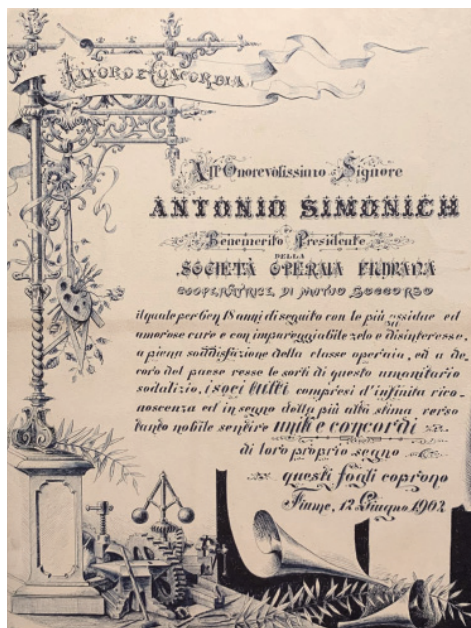 LAVORO E CONCORDIA
All'Onorevolissimo Signore
ANTONIO SIMONICH
Benemerito Presidente
DELLA
SOCIETÀ OPERAIA FIUMANA
COOPERATRICE DI MUTUO SOCCORSO
il quale per ben 18 anni di seguito con le più assidue ed
amorose cure e con impareggiabile zelo e disinteresse,
a piena soddisfazione della classe operaia, ed a de-
coro del paese resse le sorti di questo umanitario
sodalizio, i soci tutti compresi d'infinita rico-
noscenza ed in segno della più alta stima verso
tanto nobile sentire uniti e concordi
di loro proprio segno
questi fogli coprono
Fiume, 12 Giugno 1902